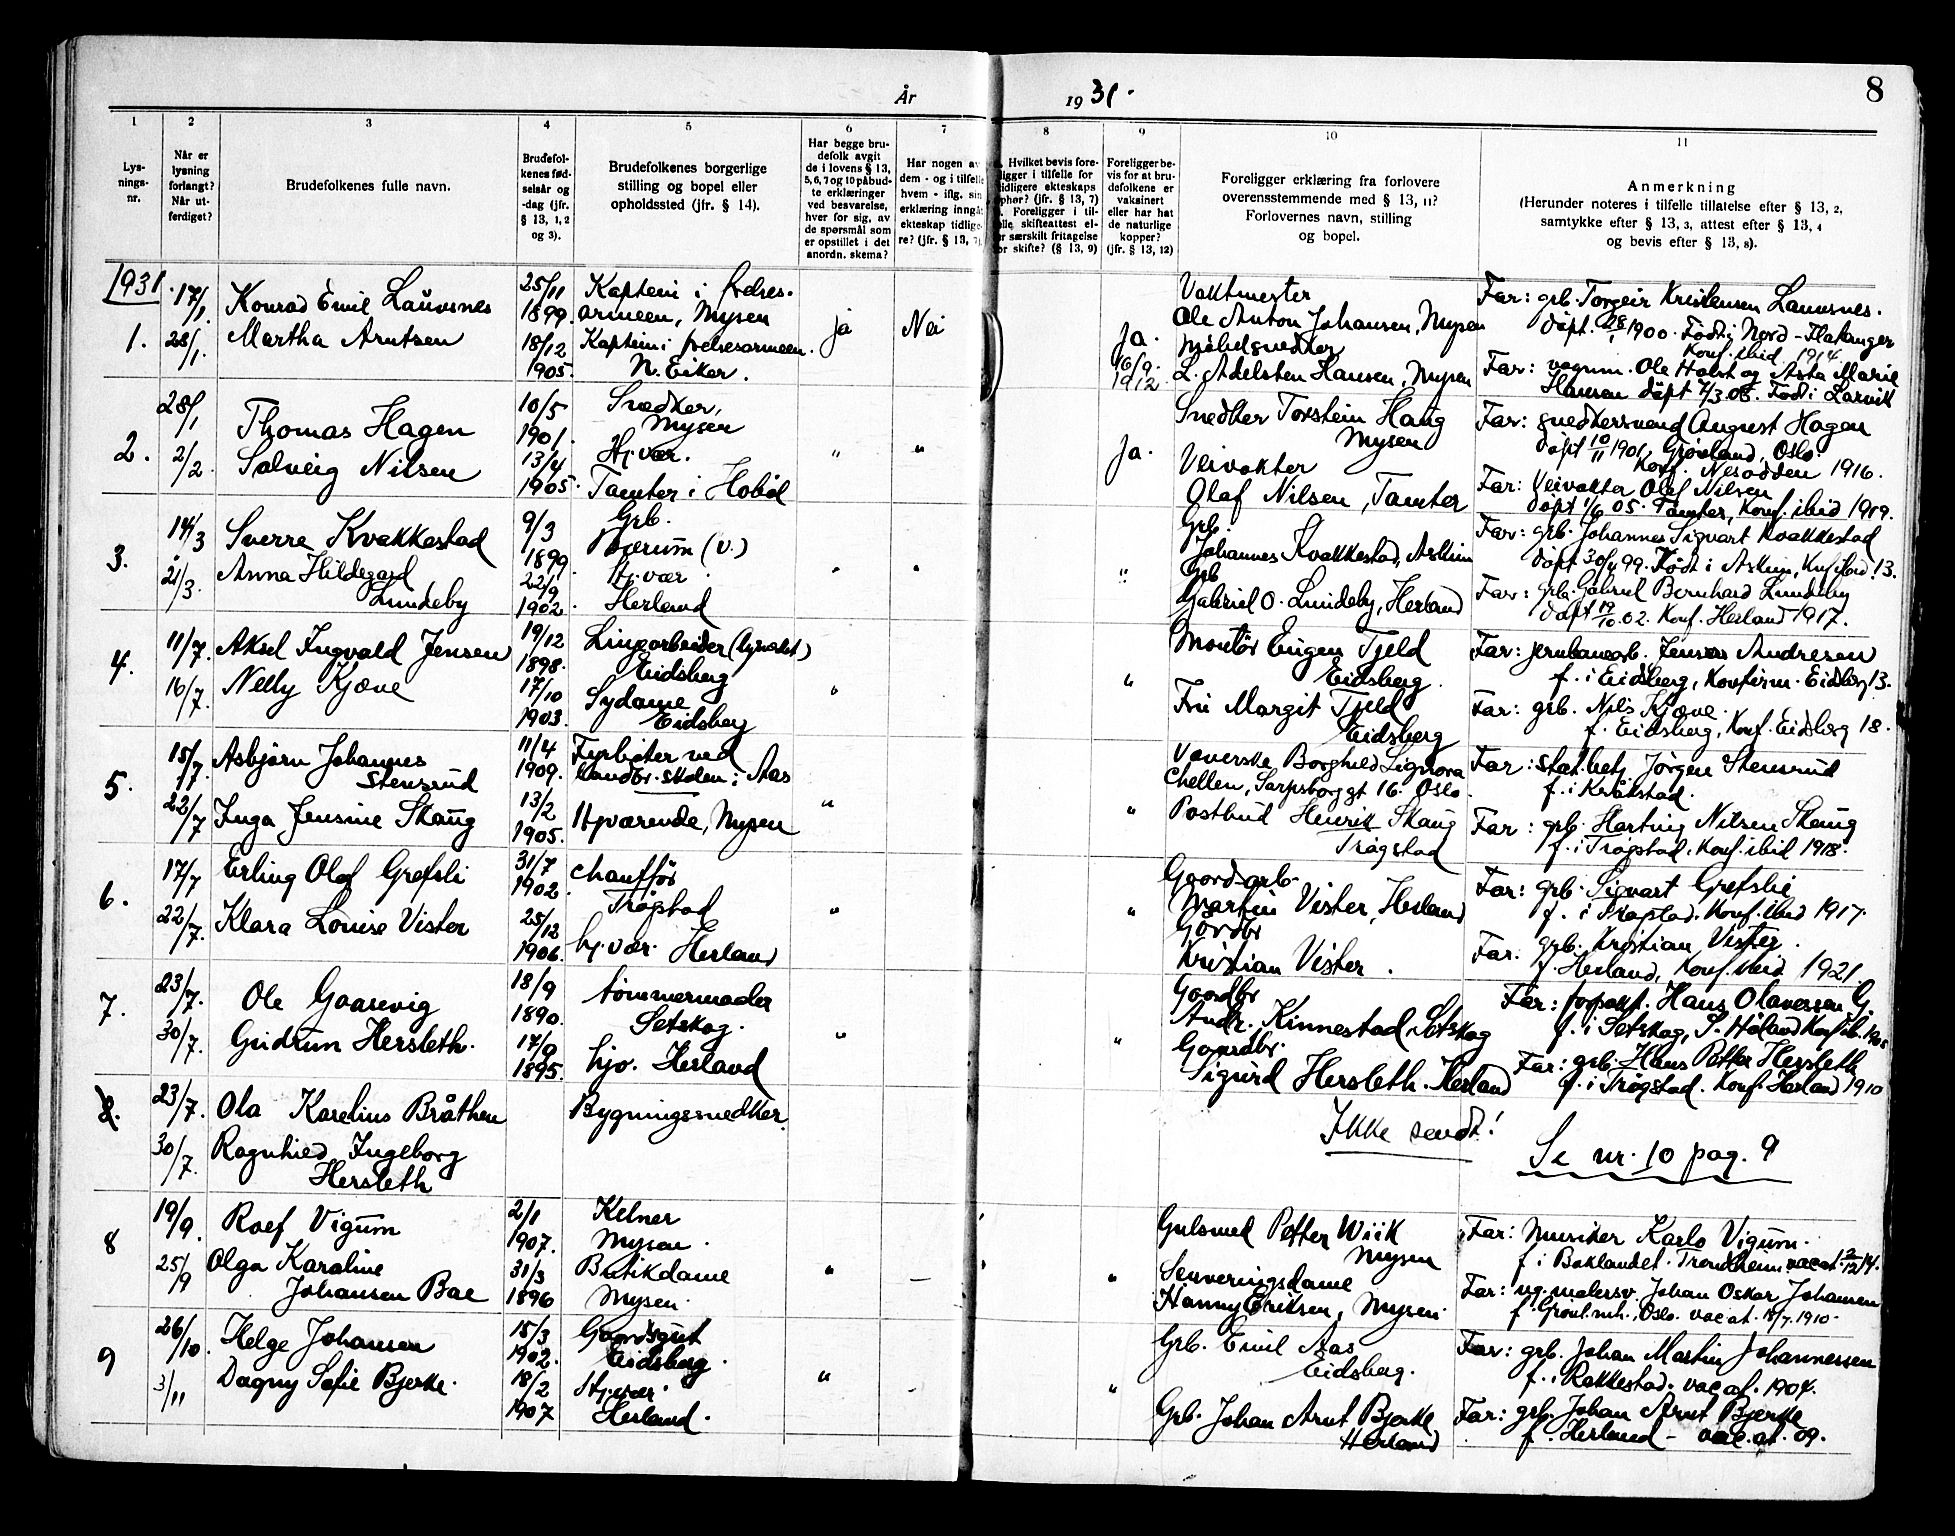 År 1931.
8
1
2
3
4
5
6
7
8
9
10
11
Lys-
nings-
nr.
Når er
lysning
forlangt?
Når ut-
ferdiget?
Brudefolkenes fulle navn.
Brudefol-
kenes fød-
selsår og
-dag (jfr.
§ 13, 1, 2
og 3).
Brudefolkenes borgerlige
stilling og bopel eller
opholdssted (jfr. § 14).
Har begge bru-
defolk avgit
de i lovens § 13,
5, 6, 7 og 10 påbud-
te erklæringer
ved besvarelse,
hver for sig, av
de spørsmål som
er opstillet i det
anordn. skema?
Har nogen av
dem - og i tilfelle
hvem - iflg. sin
erklæring inngåt
ekteskap tidlige-
re? (jfr. § 13, 7)
Hvilket bevis fore-
ligger i tilfelle for
tidligere ekteskaps
ophør? (jfr. § 13, 7)
Foreligger i til-
felle skifteattest el-
ler særskilt fritagelse
for skifte? (§ 13, 9)
Foreligger be-
vis for at bru-
defolkene er
vaksinert
eller har hat
de naturlige
kopper?
(jfr. § 13, 12)
Foreligger erklæring fra forlovere
overensstemmende med § 13, 11?
Forlovernes navn, stilling
og bopel.
Anmerkning
(Herunder noteres i tilfelle tillatelse efter § 13, 2,
samtykke efter § 13, 3, attest efter § 13, 4
og bevis efter § 13, 8).
1931.
1.
17/1.
23/1.
Konrad Emil Lauvsnes
Martha Arntsen
25/11
1899.
18/12
1905.
Kaptein i frelses-
armeen, Mysen
Kaptein i frelsesarmeen.
N. Eiker.
ja
Nei
Ja.
16/9.
1912.
Vaktmester
Ole Anton Johansen, Mysen
Møbelsnedker
L. Adelsten Hansen, Mysen
Far: grb. Torgeir Kristensen Lauvsnes.
døpt. 28/1 1900. Født i Nord-Flatanger
Konf. ibid 1914
Far: vognm. Ole Holst og Asta Marie
Hansen døpt 7/3.06. Født i Larvik
2.
28/1
2/2.
Thomas Hagen
Solveig Nilsen
10/5
1901.
13/4
1905.
Snedker,
Mysen
Hj.vær.
Tomter i Hobøl
"
"
Ja.
Snedker Torstein Haug
Mysen
Veivokter
Olaf Nilsen, Tomter
Far: snedkersvend August Hagen
døpt 10/11 1901, Grønland, Oslo
Konf. Nesodden 1916.
Far: Veivokter Olaf Nilsen
døpt 1/6 05. Tomter, Konf. ibid 1919.
3.
14/3
21/3.
Sverre Kvakkestad
Anna Hildegard
Lundeby
9/3
1899
22/9
1902.
Grb.
Bærum (V.)
Hj.vær.
Herland
"
"
"
Grb.
Johannes Kvakkestad, Askim
Grb
Gabriel O. Lundeby, Herland
Far: grb. Johannes Sigvart Kvakkestad
døpt 30/4 99. Født i Askim, Knf ibid. 13.
Far: grb. Gabriel Bernhard Lundeby
døpt 19/10.02. Konf. Herland 1917.
4.
11/7.
16/7.
Aksel Ingvald Jensen
Nelly Kjæve
19/12
1898.
17/10
1903.
Linjearbeider
Eidsberg
Sydame
Eidsberg
"
"
Montør Eugen Tjeld
Eidsberg.
Fru Margit Tjeld
Eidsberg
Far: jernbanearb. Jens Andresen
f. i Eidsberg, Konfirm. Eidsberg 13.
Far: grb. Nils Kjæve.
f. Eidsberg, Konf. Eidsberg 18.
5.
15/7.
22/7
Asbjørn Johannes
Stensrud
Inga Jensine Skaug
11/4
1909.
13/2
1905.
Fyrbøter ved
Landbr. skolen i Aas
Hjværende, Mysen
"
"
Væverske Borghild Signora
Chellen, Sarpsborggt 16. Oslo.
Postbud Henrik Skaug
Trøgstad
Far: stat.betj. Jørgen Stensrud
f. i Kråkstad.
Far: grb. Hartvig Nilsen Skaug
f. i Trøgstad, Konf. ibid 1918.
6.
17/7
22/7.
Erling Olaf Grefsli
Klara Louise Vister
31/7
1902.
25/12
1906.
chauffør
Trøgstad
hj.vær. Herland
"
"
Gaardarb.
Martin Vister, Herland
Gårdbr
Kristian Vister.
Far: grb. Sigvart Grefsli
f. i Trøgstad. Konf. ibid 1917.
Far. grb. Kristian Vister.
f. Herland, Konf. ibid 1921.
7.
23/7.
30/7.
Ole Gaasevig
Gudrun Hersleth.
18/9
1890.
17/9
1895.
tømmermaaler
Setskog.
hjv. Herland
"
"
Gaardbr
Andr. Kinnestad, Setskog
Gaardbr.
Sigurd Hersleth. Herland
Far: forpakt. Hans Olaversen G
f. i Setskog, S. Høland Konf ib. 1905
Far: grb. Hans Petter Hersleth
f. i Trøgstad. Konf. Herland 1910
8.
23/7.
30/7.
Ola Karelius Bråthen
Ragnhild Ingeborg
Hersleth
Bygningssnedker
Ikke sendt!
Se nr. 10 pag. 9
8
19/9.
25/9
Roef Vigum
Olga Karoline
Johansen Bae
2/1
1907.
31/3
1896
Kelner
Mysen.
Butikdame
Mysen.
"
—
"
Gulsmed Petter Wiik
Mysen
Serveringsdame
Hanny Eriksen, Mysen.
Far: Musiker Karlo Vigum.
f i Baklandet. Trondheim vac at. 2/12 14.
Far: ug. malersv. Johan Oskar Johansen
f. Grønl. mh., Oslo. vac at. 18/7.1910.
9
26/10.
3/11
Helge Johansen
Dagny Sofie Bjerke.
15/3
1902.
18/2
1907
Gaardsgut
Eidsberg.
Hj.vær.
Herland.
"
-
"
Grb. Emil Aas
Eidsberg.
Grb. Johan Arnt Bjerke
Herland
Far: grb. Johan Martin Johannessen
f. i Rakkestad. vac at. 1904.
Far: grb. Johan Arnt Bjerke
f. Herland - vac. at. 09.